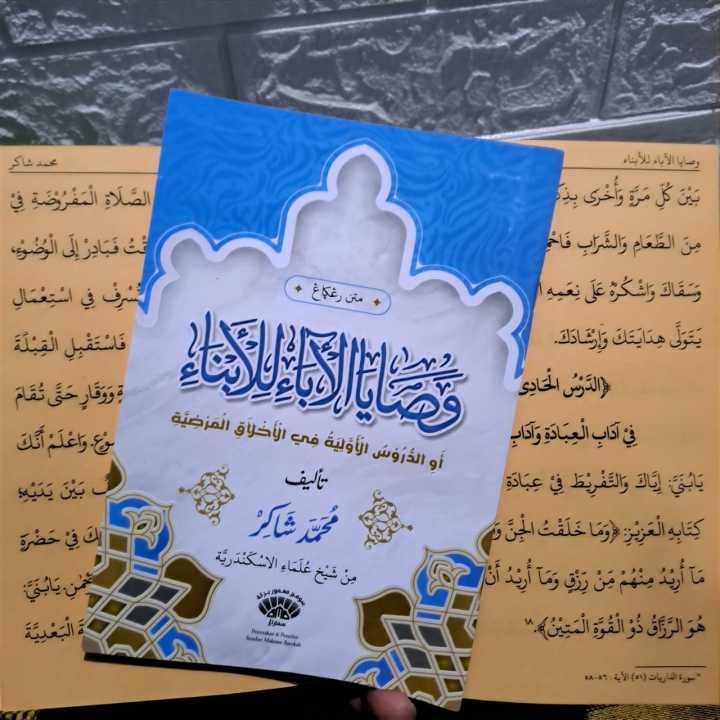 وصايا الآباء للأبناء
بَيْنَ كُلِّ مَرَّةٍ وَأُخْرَى بِذِكْ
مِنَ الطَّعَامِ وَالشَّرَابِ فَاحْمَ
وَسَقَاكَ وَاشْكُرْهُ عَلَى نِعَمِهِ
يَتَوَلَّى هِدَايَتَكَ وَإِرْشَادَكَ.
﴿الدَّرْسُ الْحَادِى
فِيْ آدَابِ الْعِبَادَةِ وَآدَابِ
يَابُنَيَّ: إِيَّاكَ وَالتَّفْرِيْطَ فِيْ عِبَادَةِ
كِتَابِهِ الْعَزِيْزِ: ﴿وَمَا خَلَقْتُ الْجِنَّ وَ
مَآ أُرِيْدُ مِنْهُمْ مِنْ رِزْقٍ وَمَآ أُرِيْدُ أَنْ
هُوَ الرَّزَّاقُ ذُو الْقُوَّةِ الْمَتِيْنُ﴾.١٨
١٨ سورة الذاريات (٥١) الآية: ٥٦-٥٨
محمد شاكر
الصَّلَاةِ الْمَفْرُوْضَةِ فِيْ
قْتُ فَبَادِرْ إِلَى الْوُضُوْءِ،
تُسْرِفْ فِي اسْتِعْمَالِ
فَاسْتَقْبِلِ الْقِبْلَةَ
وَوَقَارٍ حَتَّى تُقَامَ
وَاعْلَمْ أَنَّكَ
بَيْنَ يَدَيْهِ؛
كَ فِيْ حَضْرَةِ
يَابُنَيَّ:
ةَ الْبَعْدِيَّةَ
متن رڠكاڠ
وَصَايَا الْآبَاءِ لِلْأَبْنَاءِ
أَوِ الدُّرُوْسُ الْأَوَّلِيَّةُ فِي الْأَخْلَاقِ الْمَرْضِيَّةِ
تأليف
مُحَمَّد شَاكِرْ
مِنْ شَيْخِ عُلَمَاءِ الْاِسْكَنْدَرِيَّة
Percetakan & Penerbit
Sumber Makmur Barokah